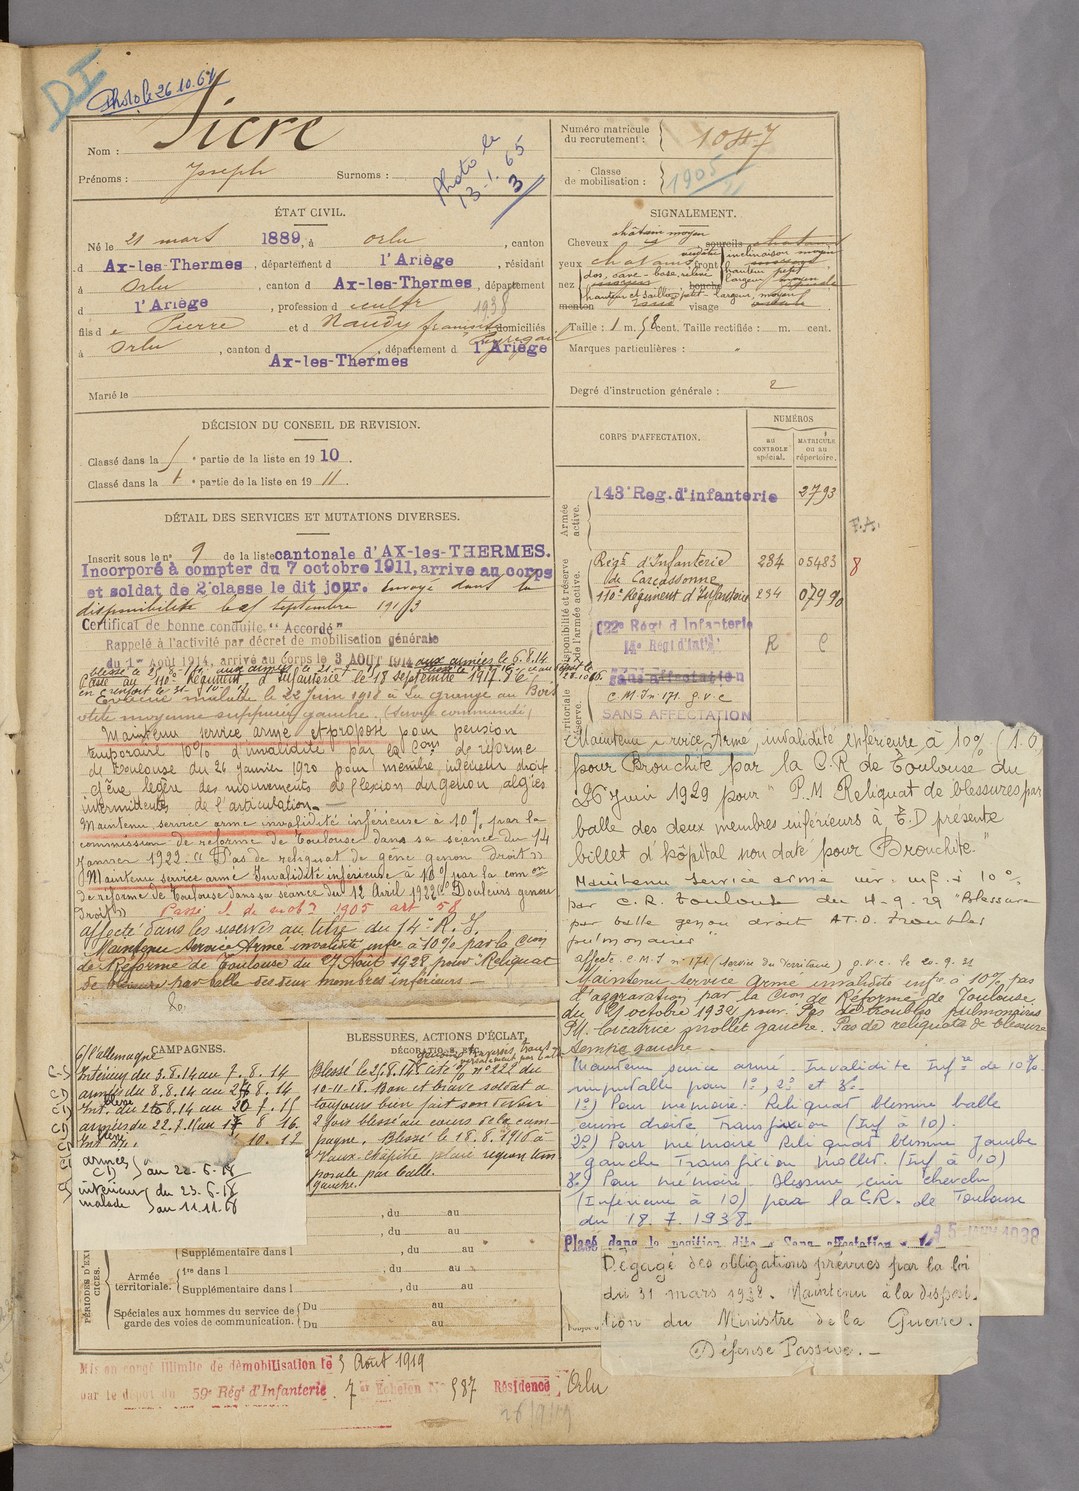 DI
Photo le 26.10.61
Nom : Sicre
Prénoms : Joseph Surnoms :
Photo le
13.1.65
3
Numéro matricule
du recrutement : 1047
Classe
de mobilisation : 1905
ÉTAT CIVIL.
Né le 21 mars 1889, à Orlu, canton
d Ax-les-Thermes, département d l'Ariège, résidant
à Orlu, canton d Ax-les-Thermes, département
d l'Ariège, profession d cultr 1938
fils de Pierre et d Naudy domiciliés
à Orlu, canton d Ax-les-Thermes, département d l'Ariège
Marié le
SIGNALEMENT.
châtain moyen
Cheveux sourcils
yeux front inclinaison moyen
hauteur petit
nez dos, cave - base, relevé bouche largeur moyen
menton visage
Taille : 1 m. 58 cent. Taille rectifiée : m. cent.
Marques particulières :
Degré d'instruction générale : 2
DÉCISION DU CONSEIL DE REVISION.
Classé dans la partie de la liste en 1910.
Classé dans la 1e partie de la liste en 1911.
CORPS D'AFFECTATION.
NUMÉROS
AU CONTROLE spécial.
MATRICULE ou au répertoire.
Armée active.
143e Reg. d'infanterie 2793
F.A.
Disponibilité et réserve de l'armée active.
Régt d'Infanterie 234 05483 8
de Carcassonne
110e Régiment d'Infanterie 234 07990
Régt d'Infanterie
14e Régt d'Infie R C
sans affectation
C.M.I n° 171. g.v.c
SANS AFFECTATION
DÉTAIL DES SERVICES ET MUTATIONS DIVERSES.
Inscrit sous le n° 9 de la liste cantonale d'AX-les-THERMES.
Incorporé à compter du 7 octobre 1911, arrive au corps
et soldat de 2e classe le dit jour. Envoyé dans la
disponibilité le septembre 1913
Certificat de bonne conduite "Accordé"
Rappelé à l'activité par décret de mobilisation générale
du 1er Août 1914, arrivé au corps le 3 AOUT 1914 aux armées le 6.8.14
Passé au 110e Régiment d'Infanterie le 18 septembre 1917
Evacué malade le 22 Juin 1918 à La grange au Bois
otite moyenne suppurée gauche. (Service commandé)
Maintenu service armé et proposé pour pension
temporaire 10% d'invalidité par la Con de réforme
de Toulouse du 26 Janvier 1920 pour membre inférieur droit
gêne légère des mouvements de flexion du genou algies
intermittentes de l'articulation.
Maintenu service armé invalidité inférieure à 10% par la
commission de réforme de Toulouse dans sa séance du 14
Janvier 1922. "Pas de reliquat de gêne genou droit"
Maintenu service armé Invalidité inférieure à 10% par la comon
de réforme de Toulouse dans sa séance du 12 Avril 1922 "Douleurs genou
droit" Passé cl. de mob. 1905 art 58
affecté dans les réserves au titre du 14e R.I.
Maintenu Service Armé invalidité infre à 10% par la Cion
de Réforme de Toulouse du 27 Août 1928 pour "Reliquat
de blessure par balle des deux membres inférieurs -
Maintenu service Armé, invalidité inférieure à 10%
pour Bronchite par la C.R de Toulouse du
26 Juin 1929 pour "P.M Reliquat de blessures par
balle des deux membres inférieurs à T.D présente
billet d'hôpital non daté pour Bronchite."
Maintenu Service armé inv. inf. à 10%
par C.R. Toulouse du 4-9.29 "Blessure
par balle genou droit AT.D. Troubles
pulmonaires".
affecté C.M.I n° 171 (Service du Territoire) g.v.c. le 20.9.31
Maintenu Service armé invalidité infre à 10% pas
d'aggravation par la Cion de Réforme de Toulouse
du 21 octobre 1932 pour. Pas de troubles pulmonaires
P.M. Cicatrice mollet gauche. Pas de reliquats de blessure
jambe gauche
Maintenu service armé. Invalidité Infre de 10%
imputable pour 1°, 2° et 3°.
1°) Pour mémoire - Reliquat blessure balle
cuisse droite transfixion (Inf à 10).
2°) Pour mémoire Reliquat blessure Jambe
gauche Transfixion mollet. (Inf à 10)
3°) Pour mémoire. Blessure cuir chevelu
(Inférieure à 10) par la C.R. de Toulouse
du 18.7.1938.
Placé dans la position dite « Sans affectation »
Dégagé des obligations prévues par la loi
du 31 mars 1928. Maintenu à la disposi-
tion du Ministre de la Guerre.
Défense Passive. -
CAMPAGNES.
C/ l'allemagne
Intérieur du 3.8.14 au 7.8.14
armées du 8.8.14 au 8.14
armées du 22.7.15 au 8 16
armées
CD au 22.6.18
intérieur du 23.6.18
malade au 11.11.18
BLESSURES, ACTIONS D'ÉCLAT,
DÉCORATIONS, ETC.
Blessé le cité n° 222 du
10-11-18. Bon et brave soldat a
toujours bien fait son devoir
2 fois blessé au cours de la cam-
pagne. Blessé le 18.8.1916 à
Vaux-Chapitre plaie région tem-
porale par balle.
gauche.
, du au
, du au
PÉRIODES D'EXERCICES.
Supplémentaire dans l , du au
Armée territoriale. 1re dans l , du au
Supplémentaire dans l , du au
Spéciales aux hommes du service de garde des voies de communication. Du au
Du au
Mis en congé illimité de démobilisation le 3 Août 1919
par le dépôt du 59e Régt d'Infanterie. 7me Echelon N° 587 Résidence Orlu